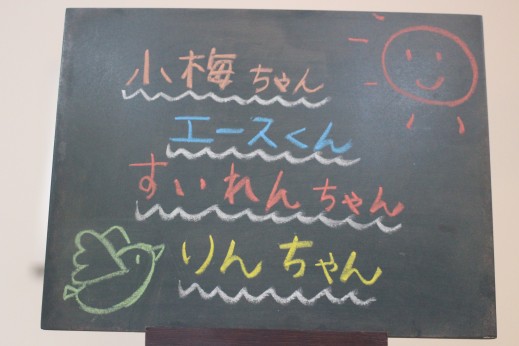 小梅ちゃん
エースくん
すいれんちゃん
りんちゃん